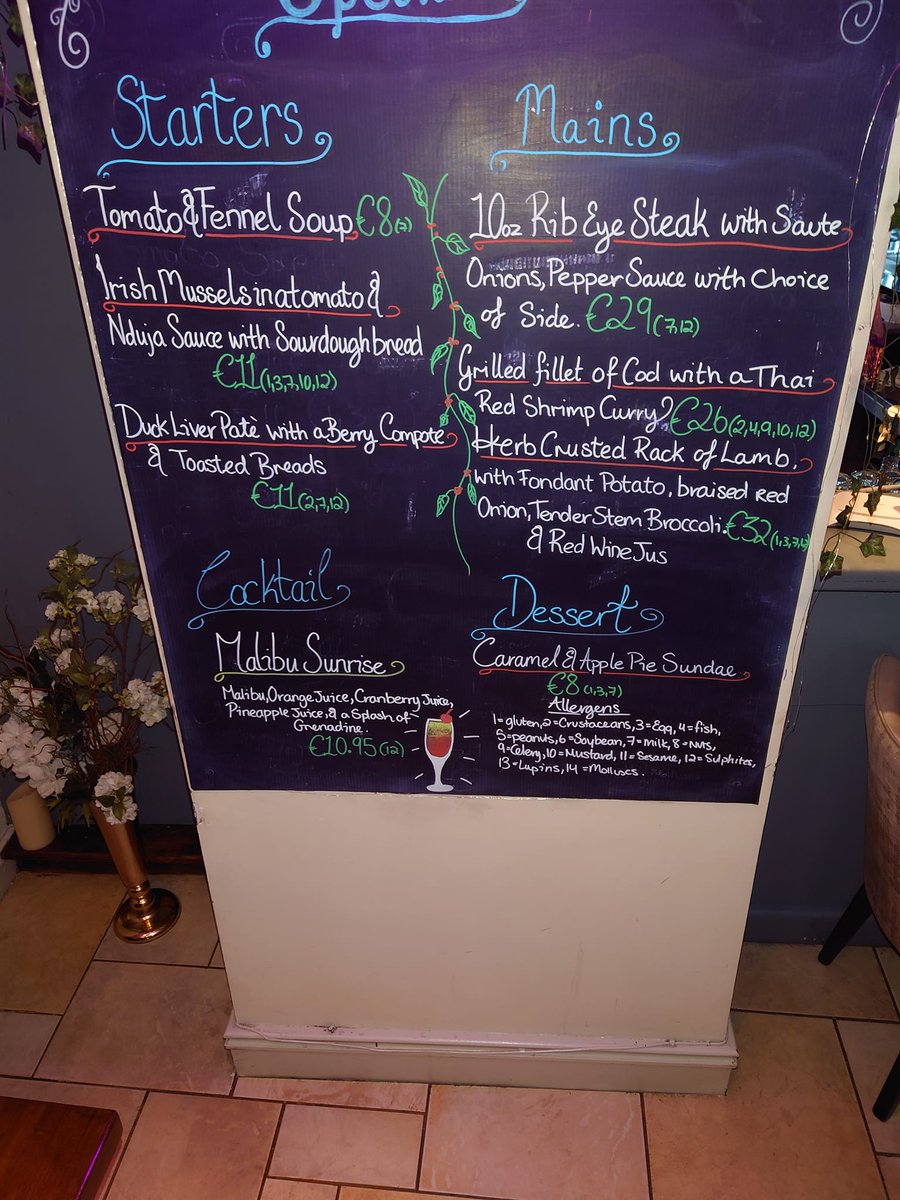 Starters
Tomato & Fennel Soup €8 (7)
Irish Mussels in a tomato &
Nduja Sauce with Sourdough bread
€11 (1,3,7,10,12)
Duck Liver Patè with a Berry Compote
& Toasted Breads
€11 (2,7,12)
Mains
10oz Rib Eye Steak with Saute
Onions, Pepper Sauce with Choice
of Side. €29 (7,12)
Grilled fillet of Cod with a Thai
Red Shrimp Curry, €26 (2,4,9,10,12)
Herb Crusted Rack of Lamb,
with Fondant Potato, braised red
Onion, Tender Stem Broccoli €32 (1,3,7,12)
& Red Wine Jus
Cocktail
Malibu Sunrise
Malibu, Orange Juice, Cranberry Juice,
Pineapple Juice, & a Splash of
Grenadine.
€10.95 (12)
Dessert
Caramel & Apple Pie Sundae
€8 (1,3,7)
Allergens
1= gluten, 2= Crustaceans, 3= Egg, 4= fish,
5= peanuts, 6= Soybean, 7= Milk, 8= Nuts,
9= Celery, 10= Mustard, 11= Sesame, 12= Sulphites,
13= Lupins, 14= Molluscs.